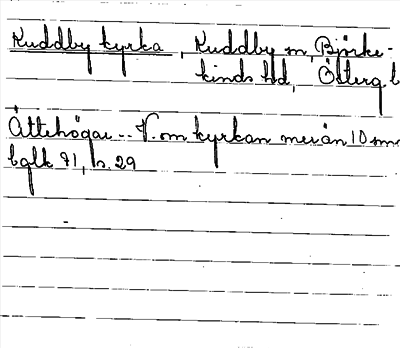 Kuddby kyrka, Kuddby sn, Björke-
kinds hd, Österg l
Ättehögar -- V. om kyrkan mer än 10 sma
bglk 91, s. 29